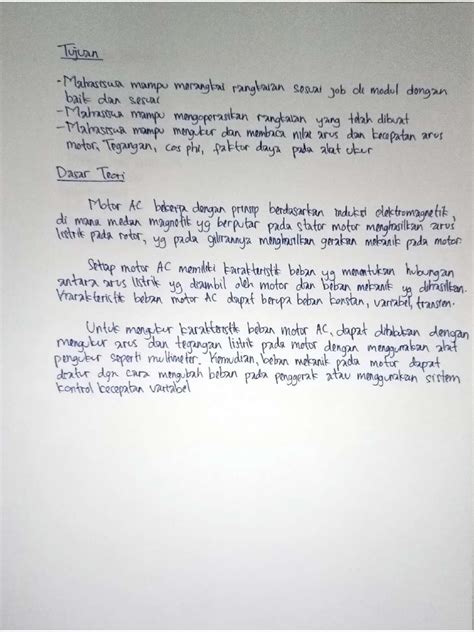 Tujuan
- Mahasiswa mampu merangkai rangkaian sesuai job di modul dengan
baik dan sesuai
- Mahasiswa mampu mengoperasikan rangkaian yang telah dibuat
- Mahasiswa mampu mengukur dan membaca nilai arus dan kecepatan arus
motor, Tegangan, cos phi, faktor daya pada alat ukur
Dasar Teori
Motor AC bekerja dengan prinsip berdasarkan induksi elektromagnetik,
di mana medan magnetik yg berputar pada stator motor menghasilkan arus
listrik pada rotor, yg pada gilirannya menghasilkan gerakan mekanik pada motor.
Setiap motor AC memiliki karakteristik beban yg menentukan hubungan
antara arus listrik yg diambil oleh motor dan beban mekanik yg dihasilkan.
Krarakteristik beban motor AC dapat berupa beban konstan, variabel, transien.
Untuk mengukur karakteristik beban motor AC, dapat dilakukan dengan
mengukur arus dan tegangan listrik pada motor dengan menggunakan alat
pengukur seperti multimeter. Kemudian, beban mekanik pada motor dapat
diatur dgn cara mengubah beban pada penggerak atau menggunakan sistem
kontrol kecepatan variabel